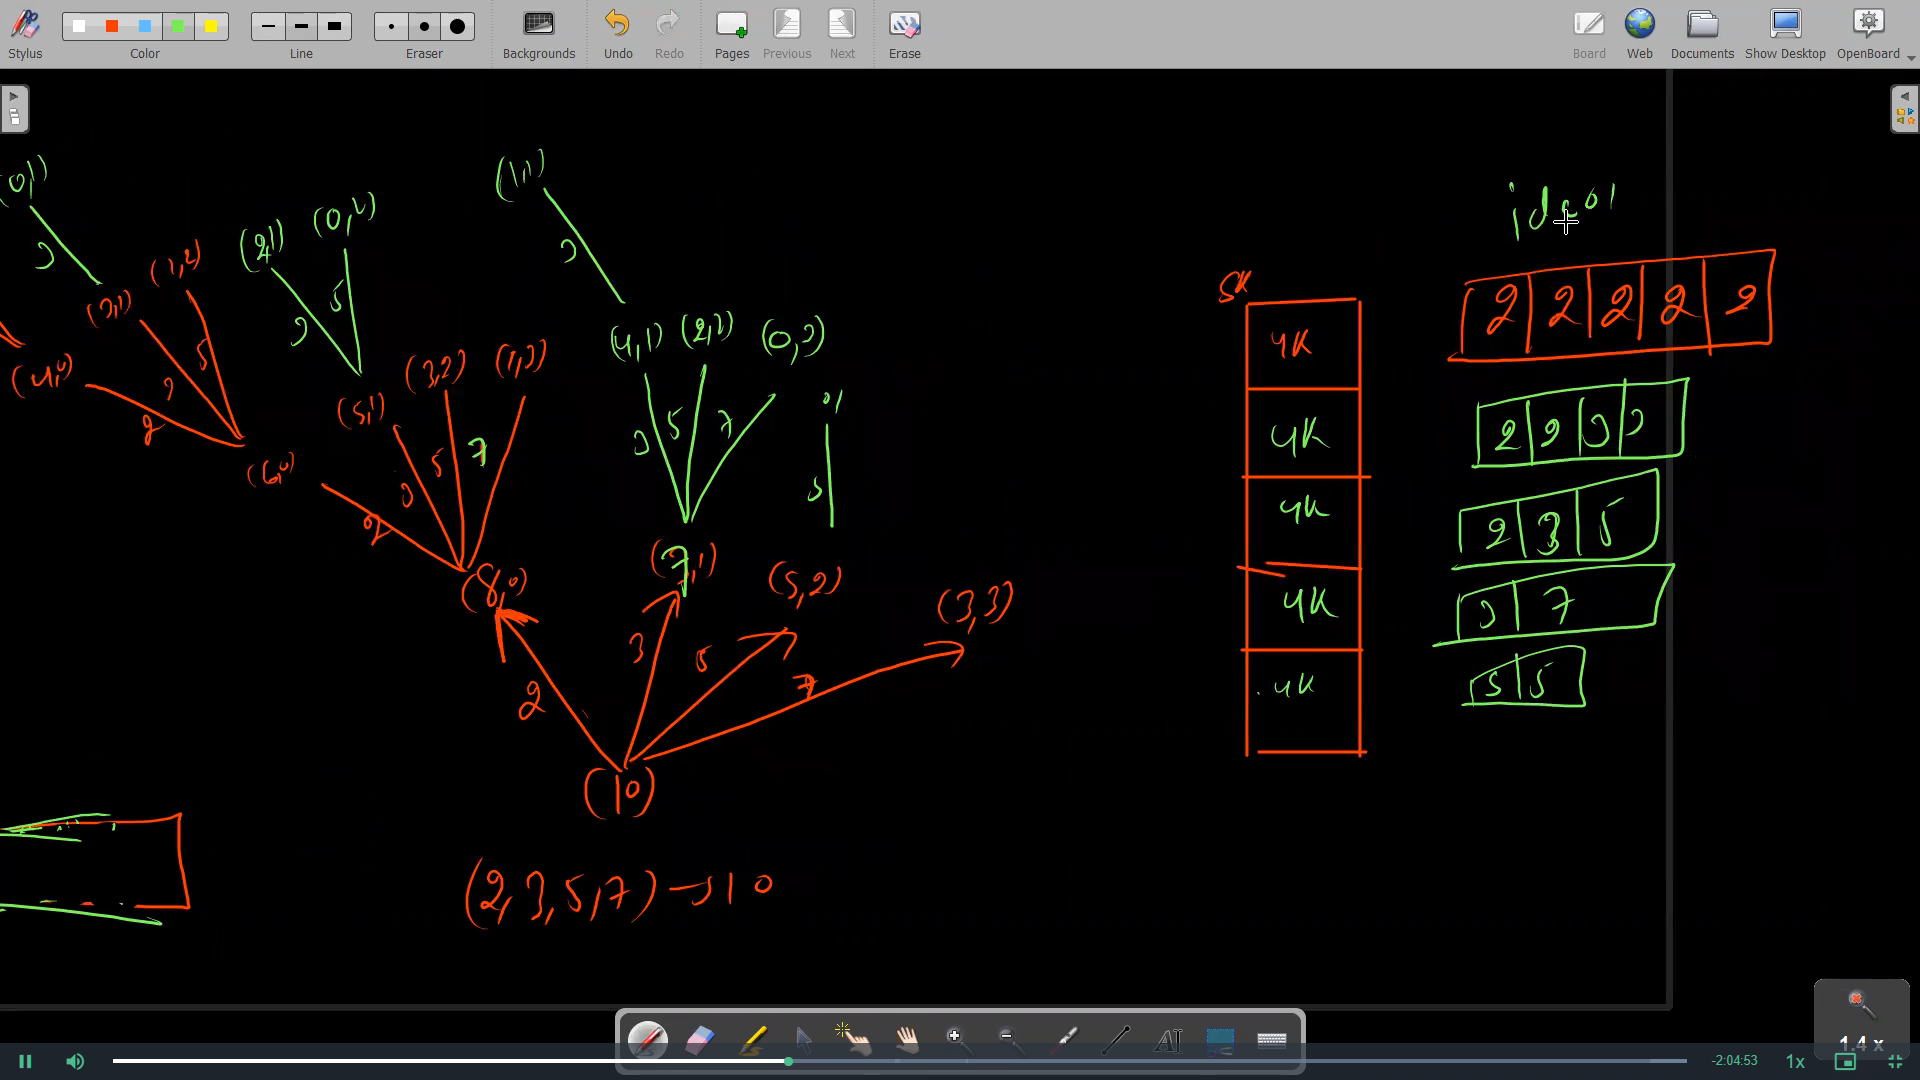 Stylus Color Line Eraser Backgrounds Undo Redo Pages Previous Next Erase Board Web Documents Show Desktop OpenBoard
(1,1)
0,1)
(0,2)
(2,1)
(1,2)
3
3
(3,1)
5
3
(4,1) (2,2) (0,3)
(3,2) (1,3)
(4,0)
3
5
2
(5,1)
5
7
3
5
7
(6,0)
3
5
2
(8,0)
7,1)
(5,2)
(3,3)
3
5
2
7
(10)
(2,3,5,7) → 10
5K
4K
4K
4K
4K
4K
2 2 2 2 2
2 2 3 3
2 3 5
3 7
5 5
1.4 x
-2:04:53 1x